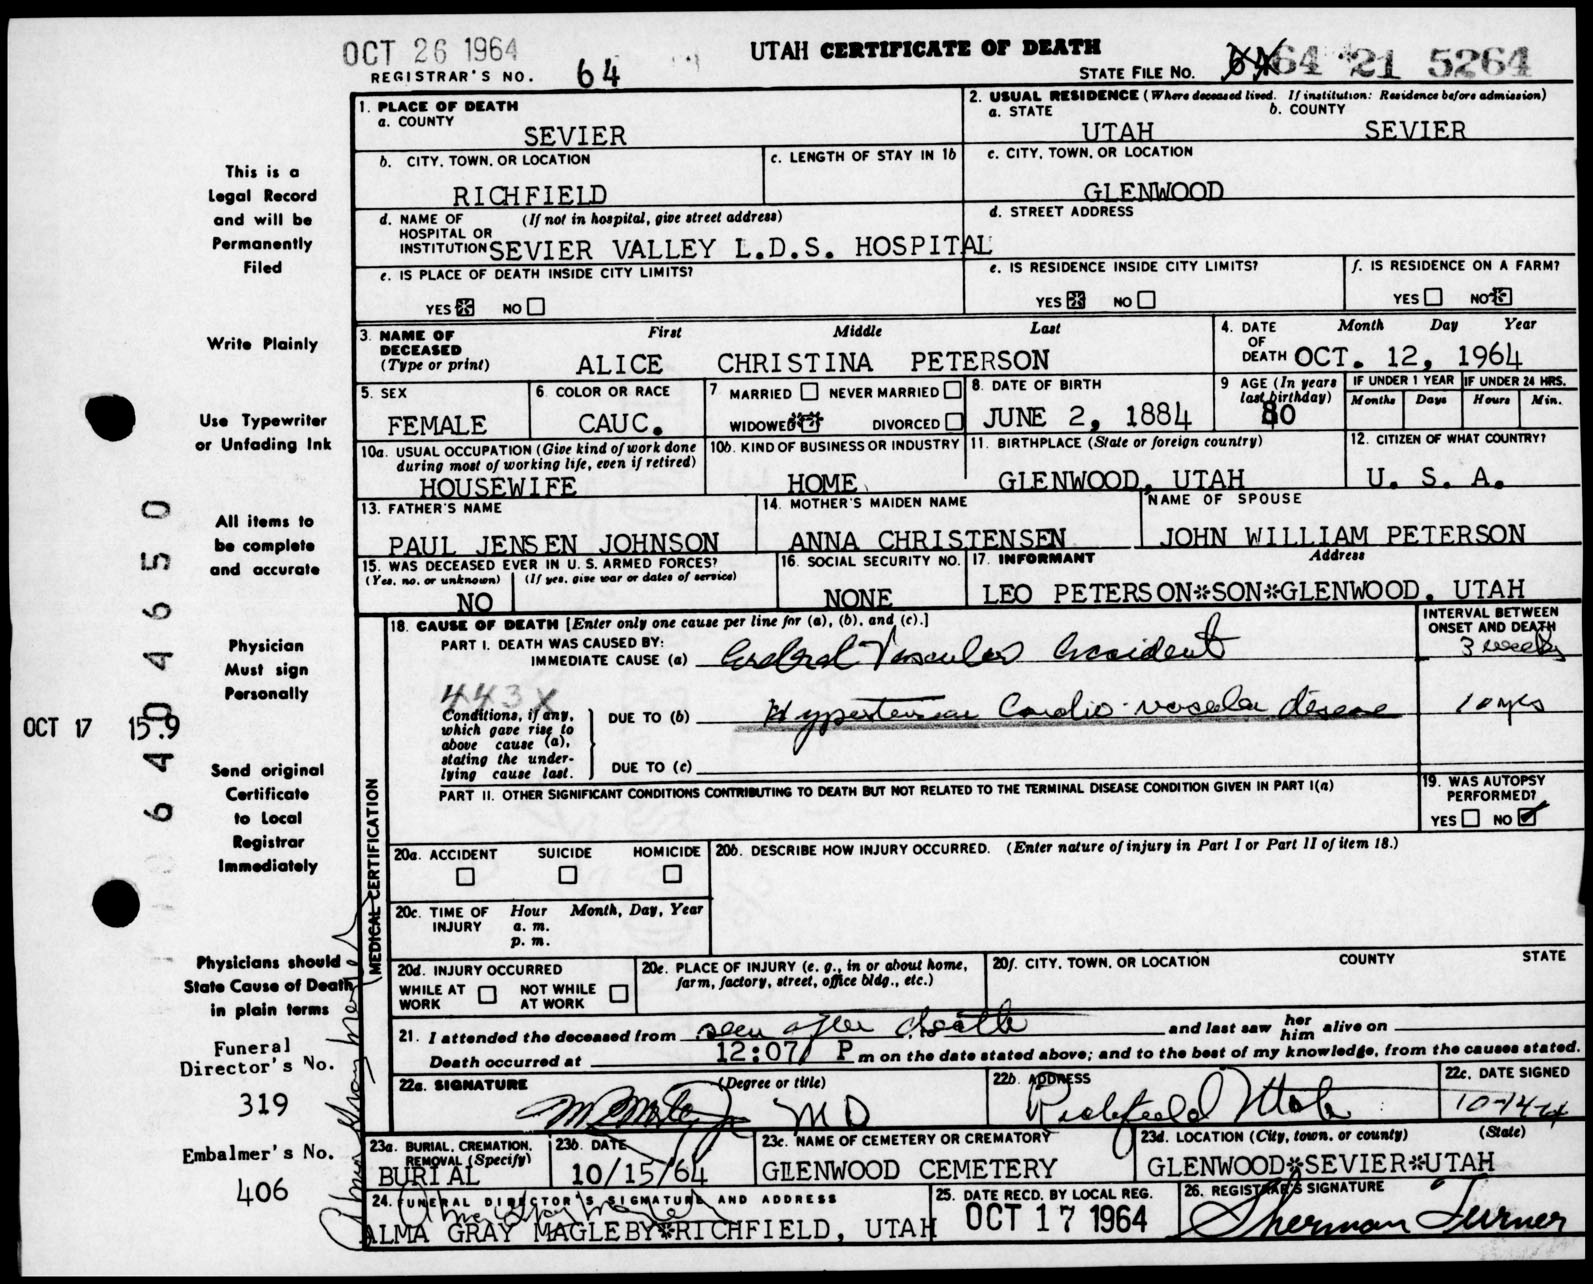 OCT 26 1964
UTAH CERTIFICATE OF DEATH
REGISTRAR'S NO. 64
STATE FILE NO. 64 21 5264
This is a
Legal Record
and will be
Permanently
Filed
Write Plainly
Use Typewriter
or Unfading Ink
All items to
be complete
and accurate
Physician
Must sign
Personally
OCT 17 15.9
64 04650
Send original
Certificate
to Local
Registrar
Immediately
Physicians should
State Cause of Death
in plain terms
Funeral
Director's No.
319
Embalmer's No.
406
1. PLACE OF DEATH
a. COUNTY
SEVIER
2. USUAL RESIDENCE (Where deceased lived. If institution: Residence before admission)
a. STATE b. COUNTY
UTAH SEVIER
b. CITY, TOWN, OR LOCATION
RICHFIELD
c. LENGTH OF STAY IN 1b
c. CITY, TOWN, OR LOCATION
GLENWOOD
d. NAME OF (If not in hospital, give street address)
HOSPITAL OR
INSTITUTION SEVIER VALLEY L.D.S. HOSPITAL
d. STREET ADDRESS
e. IS PLACE OF DEATH INSIDE CITY LIMITS?
YES NO
e. IS RESIDENCE INSIDE CITY LIMITS?
YES NO
f. IS RESIDENCE ON A FARM?
YES NO
3. NAME OF First Middle Last
DECEASED
(Type or print) ALICE CHRISTINA PETERSON
4. DATE Month Day Year
OF
DEATH OCT. 12, 1964
5. SEX
FEMALE
6. COLOR OR RACE
CAUC.
7 MARRIED NEVER MARRIED
WIDOWED DIVORCED
8. DATE OF BIRTH
JUNE 2, 1884
9 AGE (In years
last birthday)
80
IF UNDER 1 YEAR IF UNDER 24 HRS.
Months Days Hours Min.
10a. USUAL OCCUPATION (Give kind of work done
during most of working life, even if retired)
HOUSEWIFE
10b. KIND OF BUSINESS OR INDUSTRY
HOME
11. BIRTHPLACE (State or foreign country)
GLENWOOD, UTAH
12. CITIZEN OF WHAT COUNTRY?
U. S. A.
13. FATHER'S NAME
PAUL JENSEN JOHNSON
14. MOTHER'S MAIDEN NAME
ANNA CHRISTENSEN
NAME OF SPOUSE
JOHN WILLIAM PETERSON
15. WAS DECEASED EVER IN U. S. ARMED FORCES?
(Yes, no, or unknown) (If yes, give war or dates of service)
NO
16. SOCIAL SECURITY NO.
NONE
17. INFORMANT Address
LEO PETERSON*SON*GLENWOOD, UTAH
MEDICAL CERTIFICATION
18. CAUSE OF DEATH [Enter only one cause per line for (a), (b), and (c).]
INTERVAL BETWEEN
ONSET AND DEATH
PART I. DEATH WAS CAUSED BY:
IMMEDIATE CAUSE (a) Cerebral Vascular Accident 3 weeks
443X
Conditions, if any,
which gave rise to
above cause (a),
stating the under-
lying cause last.
DUE TO (b) Hypertensive Cardio-vascular disease 10 yrs
DUE TO (c)
PART II. OTHER SIGNIFICANT CONDITIONS CONTRIBUTING TO DEATH BUT NOT RELATED TO THE TERMINAL DISEASE CONDITION GIVEN IN PART I(a)
19. WAS AUTOPSY
PERFORMED?
YES NO
20a. ACCIDENT SUICIDE HOMICIDE
20b. DESCRIBE HOW INJURY OCCURRED. (Enter nature of injury in Part I or Part II of item 18.)
20c. TIME OF Hour Month, Day, Year
INJURY a. m.
p. m.
20d. INJURY OCCURRED
WHILE AT NOT WHILE
WORK AT WORK
20e. PLACE OF INJURY (e. g., in or about home,
farm, factory, street, office bldg., etc.)
20f. CITY, TOWN, OR LOCATION COUNTY STATE
21. I attended the deceased from seen after death and last saw her him alive on
Death occurred at 12:07 P m on the date stated above; and to the best of my knowledge, from the causes stated.
22a. SIGNATURE (Degree or title)
MD
22b. ADDRESS
Richfield Utah
22c. DATE SIGNED
10-14-64
23a. BURIAL, CREMATION,
REMOVAL (Specify)
BURIAL
23b. DATE
10/15/64
23c. NAME OF CEMETERY OR CREMATORY
GLENWOOD CEMETERY
23d. LOCATION (City, town, or county) (State)
GLENWOOD*SEVIER*UTAH
24. FUNERAL DIRECTOR'S SIGNATURE AND ADDRESS
ALMA GRAY MAGLEBY*RICHFIELD, UTAH
25. DATE RECD. BY LOCAL REG.
OCT 17 1964
26. REGISTRAR'S SIGNATURE
Sherman Turner